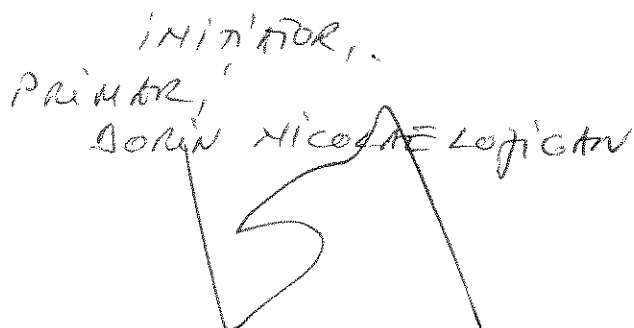 INIȚIATOR,
PRIMAR,
DORIN NICOLAE LOJIGAN